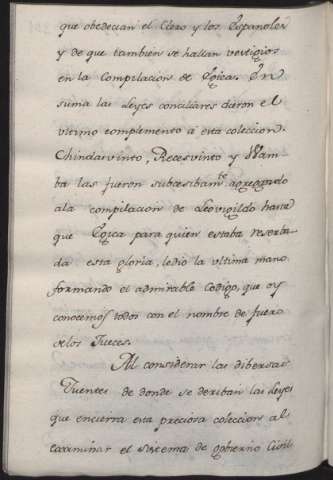 que obedecian el Clero y los Españoles
y de que tambien se hallan vestigios
en la Compilacion de Egica. En
suma las Leyes conciliares dieron el
ultimo complemento á esta coleccion.
Chindasvinto, Recesvinto y Wam-
ba las fueron subcesibamte agregando
ala compilacion de Leovigildo hasta
que Egica para quien estaba reserba-
da esta gloria, ledio la ultima mano
formando el admirable Codigo, que oy
conocemos todos con el nombre de fuero
delos Jueces.
Al considerar las dibersas
Fuentes de donde se deriban las Leyes
que encierra esta preciosa coleccion al
examinar el sistema de gobierno Civil